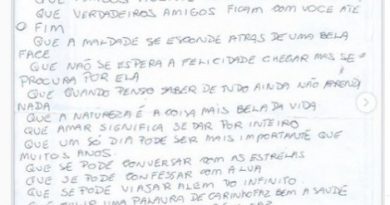 QUE VERDADEIROS AMIGOS FICAM COM VOCE ATÉ
O FIM
QUE A MALDADE SE ESCONDE ATRAS DE UMA BELA
FACE
QUE NÃO SE ESPERA A FELICIDADE CHEGAR MAS SE
PROCURA POR ELA
QUE QUANDO PENSO SABER DE TUDO AINDA NÃO APRENDI
NADA
QUE A NATUREZA É A COISA MAIS BELA DA VIDA
QUE AMAR SIGNIFICA SE DAR POR INTEIRO
QUE UM SÓ DIA PODE SER MAIS IMPORTANTE QUE
MUITOS ANOS.
QUE SE PODE CONVERSAR COM AS ESTRELAS
QUE SE PODE CONFESSAR COM A LUA
QUE SE PODE VIAJAR ALEM DO INFINITO
UMA PALAVRA DE CARINHO FAZ BEM A SAÚDE